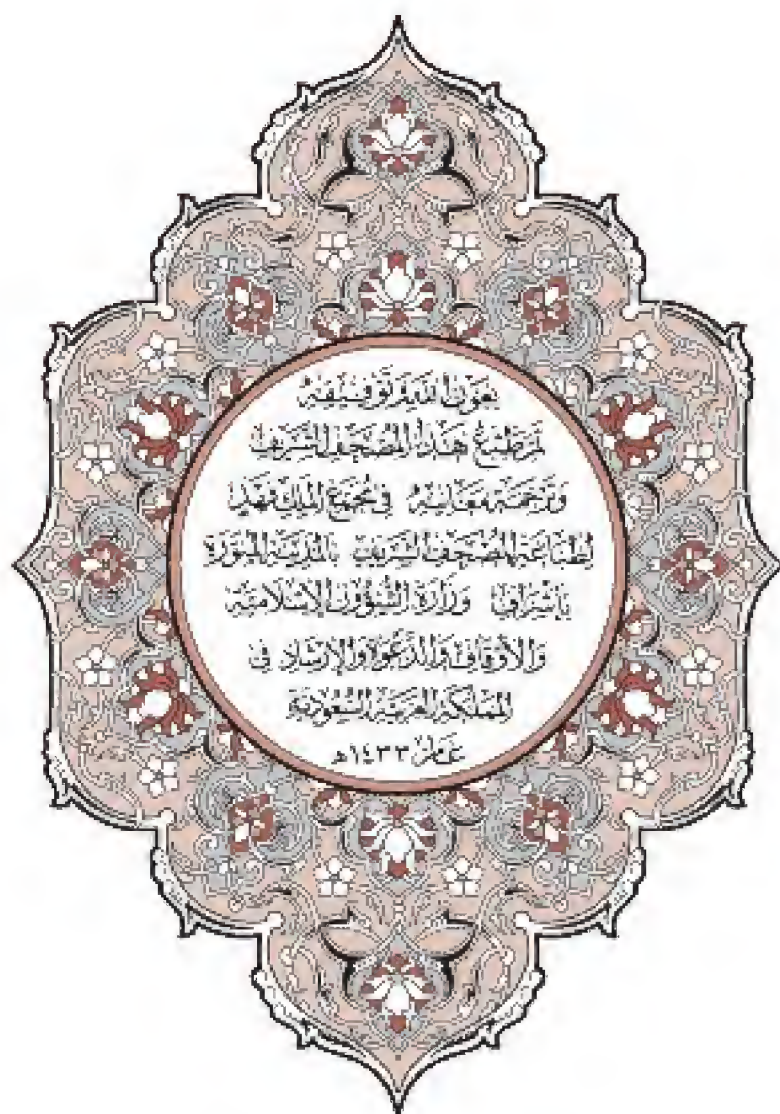 بعون الله وتوفيقه
تم طبع هذا المصحف الشريف
وترجمة معانيه في مجمع الملك فهد
لطباعة المصحف الشريف بالمدينة المنورة
بإشراف وزارة الشؤون الإسلامية
والأوقاف والدعوة والإرشاد في
المملكة العربية السعودية
عام ١٤٣٣هـ